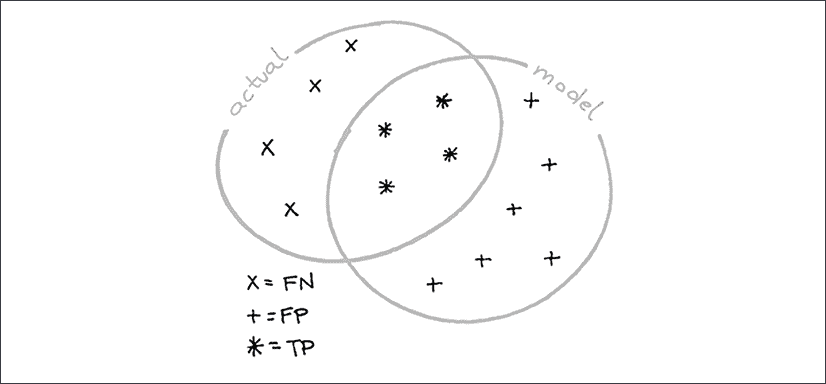 actual
model
x = FN
+ = FP
* = TP